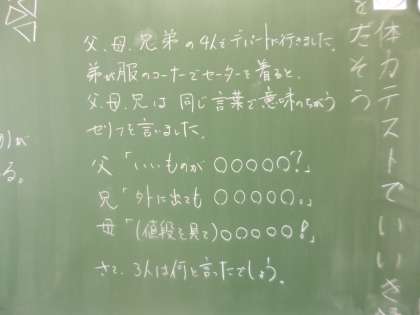 父、母、兄、弟の4人でデパートに行きました。
弟が服のコーナーでセーターを着ると、
父、母、兄は同じ言葉で意味のちがう
セリフを言いました。
父「いいものが○○○○○?」
兄「外に出ても○○○○○。」
母「(値段を見て)○○○○○!」
さて、3人は何と言ったでしょう。
体力テストでいい
をだそう
が
る。